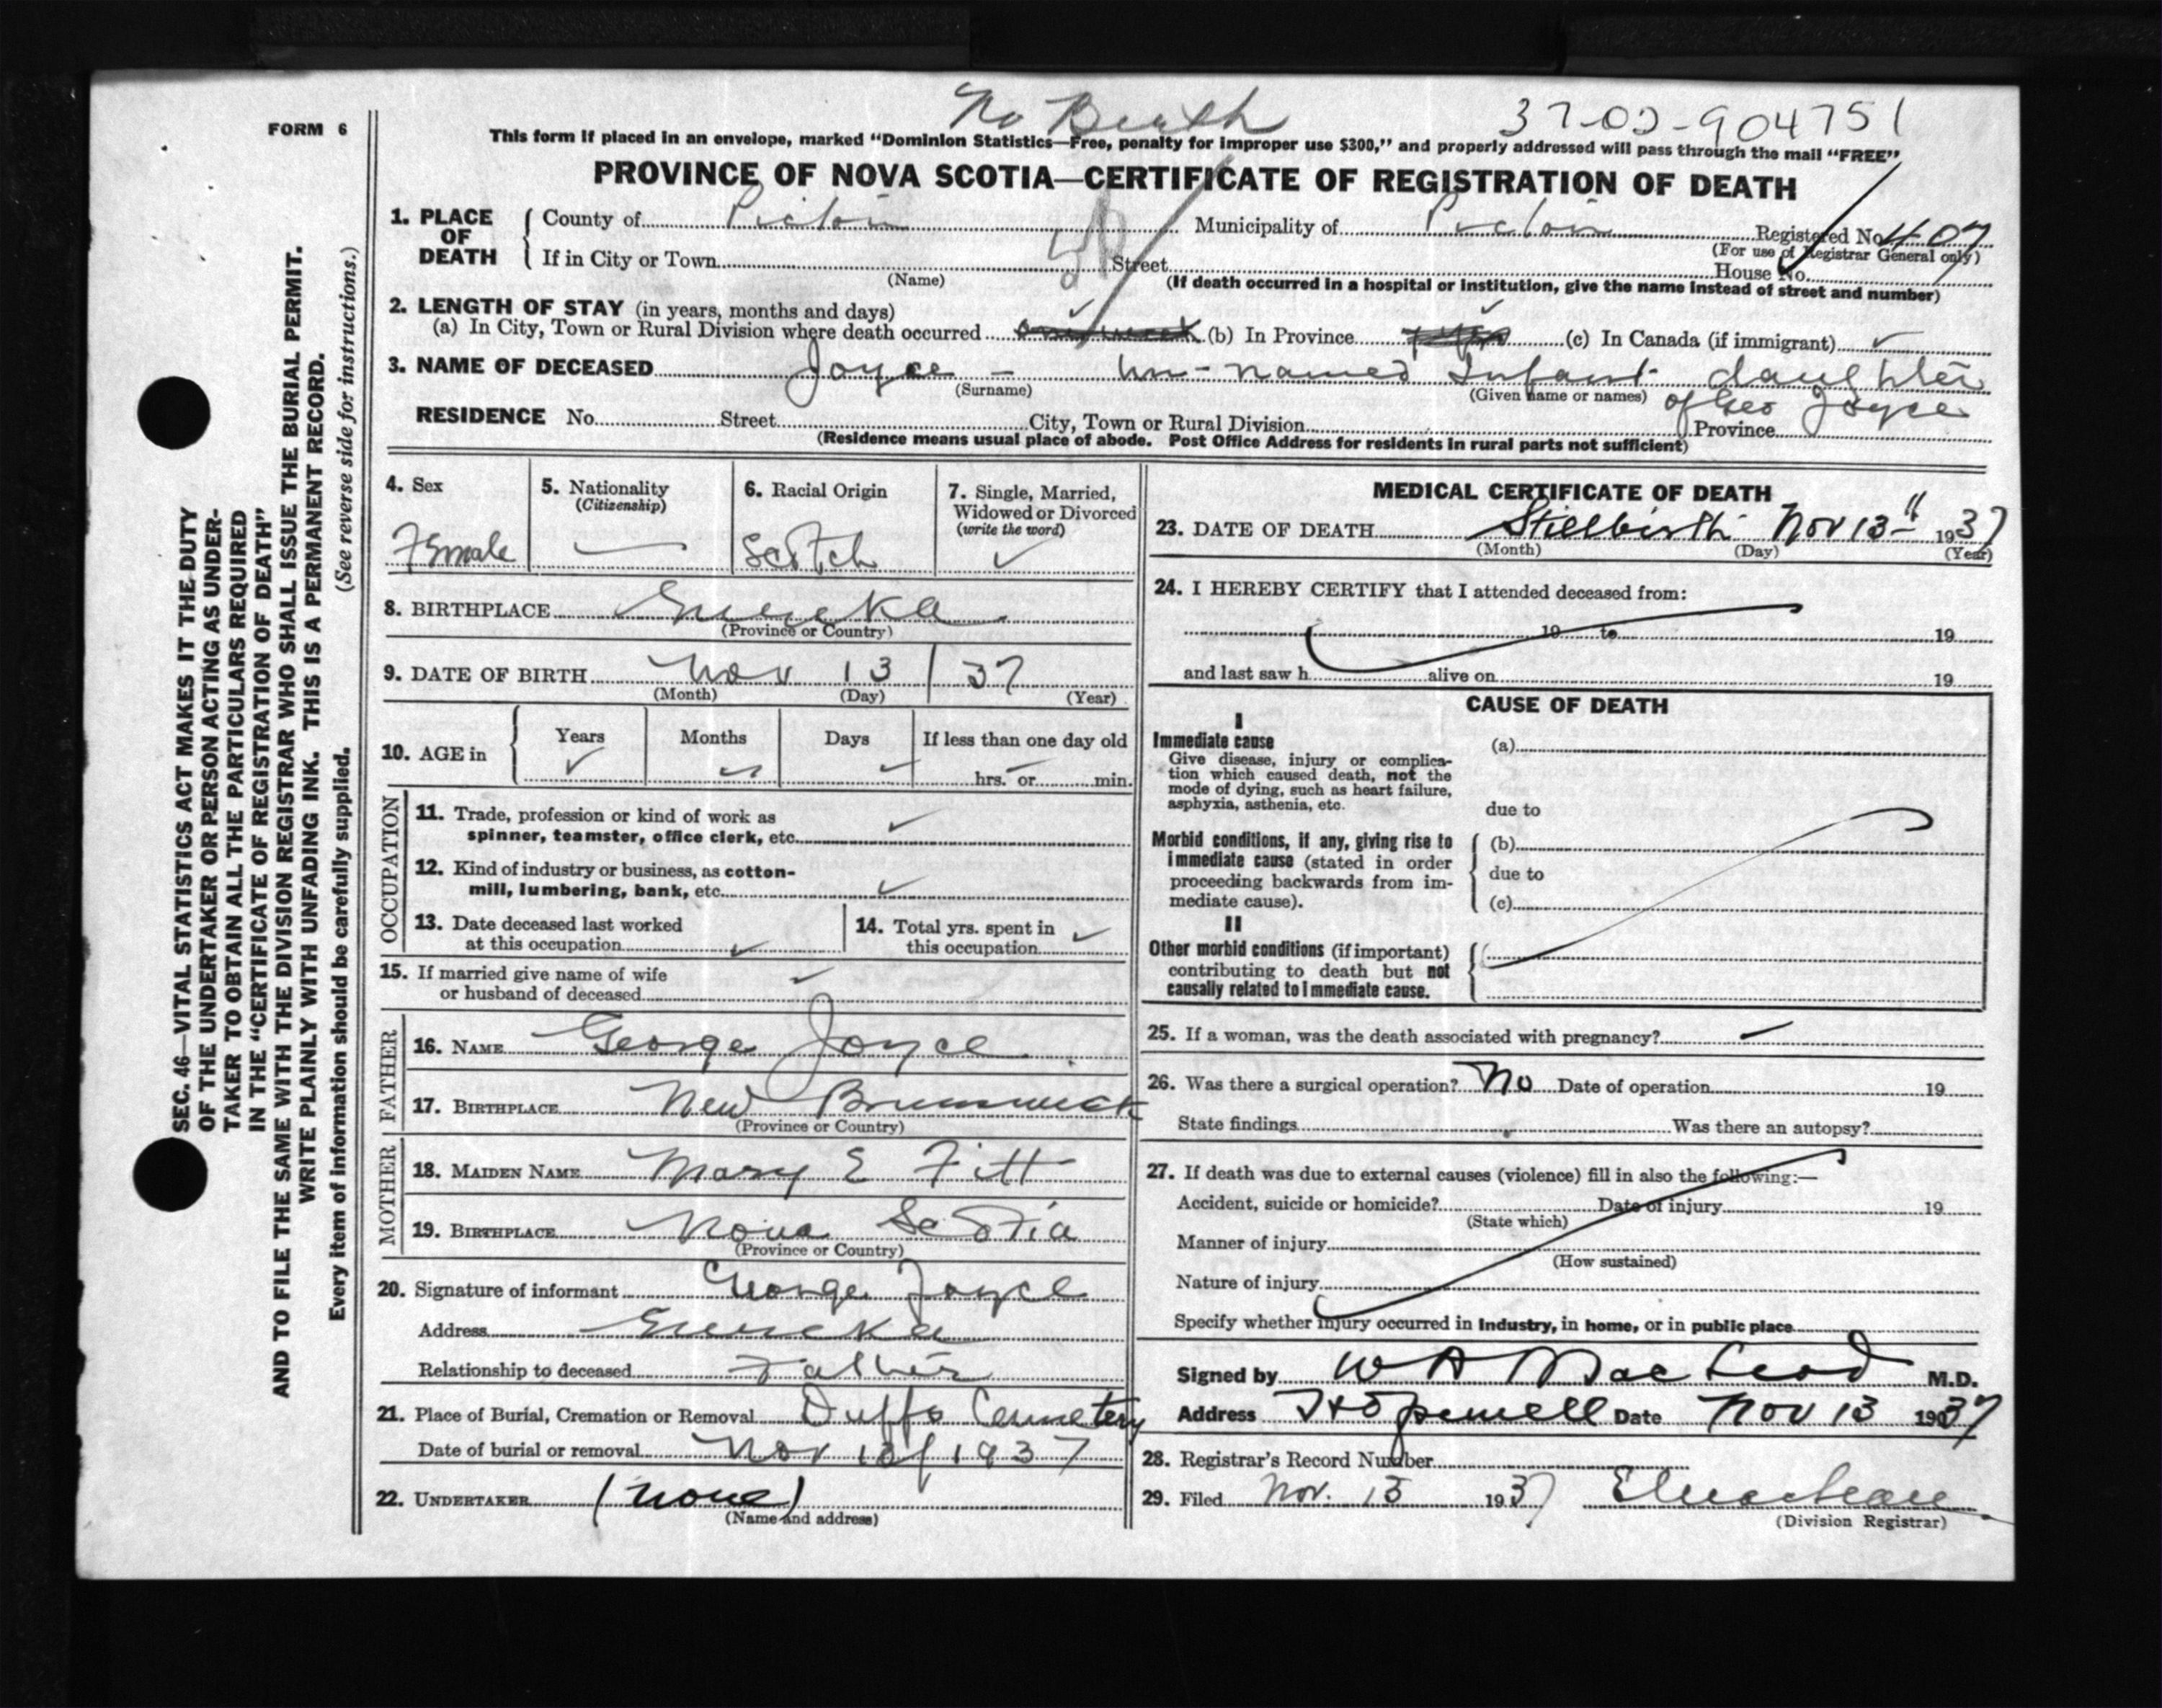 No Birth
37-02-904751
FORM 6
This form if placed in an envelope, marked “Dominion Statistics—Free, penalty for improper use $300,” and properly addressed will pass through the mail “FREE”
PROVINCE OF NOVA SCOTIA—CERTIFICATE OF REGISTRATION OF DEATH
1. PLACE OF DEATH
County of Pictou Municipality of Pictou Registered No. 407
(For use of Registrar General only)
If in City or Town Street House No.
(Name) (If death occurred in a hospital or institution, give the name instead of street and number)
2. LENGTH OF STAY (in years, months and days)
(a) In City, Town or Rural Division where death occurred (b) In Province (c) In Canada (if immigrant)
3. NAME OF DECEASED Joyce - un-named Infant daughter
(Surname) (Given name or names) of Geo Joyce
RESIDENCE No. Street City, Town or Rural Division Province
(Residence means usual place of abode. Post Office Address for residents in rural parts not sufficient)
4. Sex
Female
5. Nationality
(Citizenship)
6. Racial Origin
Scotch
7. Single, Married,
Widowed or Divorced
(write the word)
8. BIRTHPLACE Eureka
(Province or Country)
9. DATE OF BIRTH Nov 13 / 37
(Month) (Day) (Year)
10. AGE in Years Months Days If less than one day old
hrs. or min.
OCCUPATION
11. Trade, profession or kind of work as
spinner, teamster, office clerk, etc.
12. Kind of industry or business, as cotton-
mill, lumbering, bank, etc.
13. Date deceased last worked
at this occupation
14. Total yrs. spent in
this occupation
15. If married give name of wife
or husband of deceased
FATHER
16. NAME George Joyce
17. BIRTHPLACE New Brunswick
(Province or Country)
MOTHER
18. MAIDEN NAME Mary E Fitt
19. BIRTHPLACE Nova Scotia
(Province or Country)
20. Signature of informant George Joyce
Address Eureka
Relationship to deceased Father
21. Place of Burial, Cremation or Removal Duffs Cemetery
Date of burial or removal Nov 13/1937
22. UNDERTAKER (none)
(Name and address)
MEDICAL CERTIFICATE OF DEATH
23. DATE OF DEATH Stillbirth Nov 13 1937
(Month) (Day) (Year)
24. I HEREBY CERTIFY that I attended deceased from:
19 to 19
and last saw h alive on 19
CAUSE OF DEATH
I
Immediate cause
Give disease, injury or complica-
tion which caused death, not the
mode of dying, such as heart failure,
asphyxia, asthenia, etc.
(a)
due to
Morbid conditions, if any, giving rise to
immediate cause (stated in order
proceeding backwards from im-
mediate cause).
(b)
due to
(c)
II
Other morbid conditions (if important)
contributing to death but not
causally related to immediate cause.
25. If a woman, was the death associated with pregnancy?
26. Was there a surgical operation? No Date of operation 19
State findings Was there an autopsy?
27. If death was due to external causes (violence) fill in also the following:—
Accident, suicide or homicide? Date of injury 19
(State which)
Manner of injury
(How sustained)
Nature of injury
Specify whether injury occurred in Industry, in home, or in public place
Signed by W A MacLeod M.D.
Address Hopewell Date Nov 13 1937
28. Registrar's Record Number
29. Filed Nov. 13 1937
(Division Registrar)
SEC. 46—VITAL STATISTICS ACT MAKES IT THE DUTY
OF THE UNDERTAKER OR PERSON ACTING AS UNDER-
TAKER TO OBTAIN ALL THE PARTICULARS REQUIRED
IN THE “CERTIFICATE OF REGISTRATION OF DEATH”
AND TO FILE THE SAME WITH THE DIVISION REGISTRAR WHO SHALL ISSUE THE BURIAL PERMIT.
WRITE PLAINLY WITH UNFADING INK. THIS IS A PERMANENT RECORD.
Every item of information should be carefully supplied. (See reverse side for instructions.)